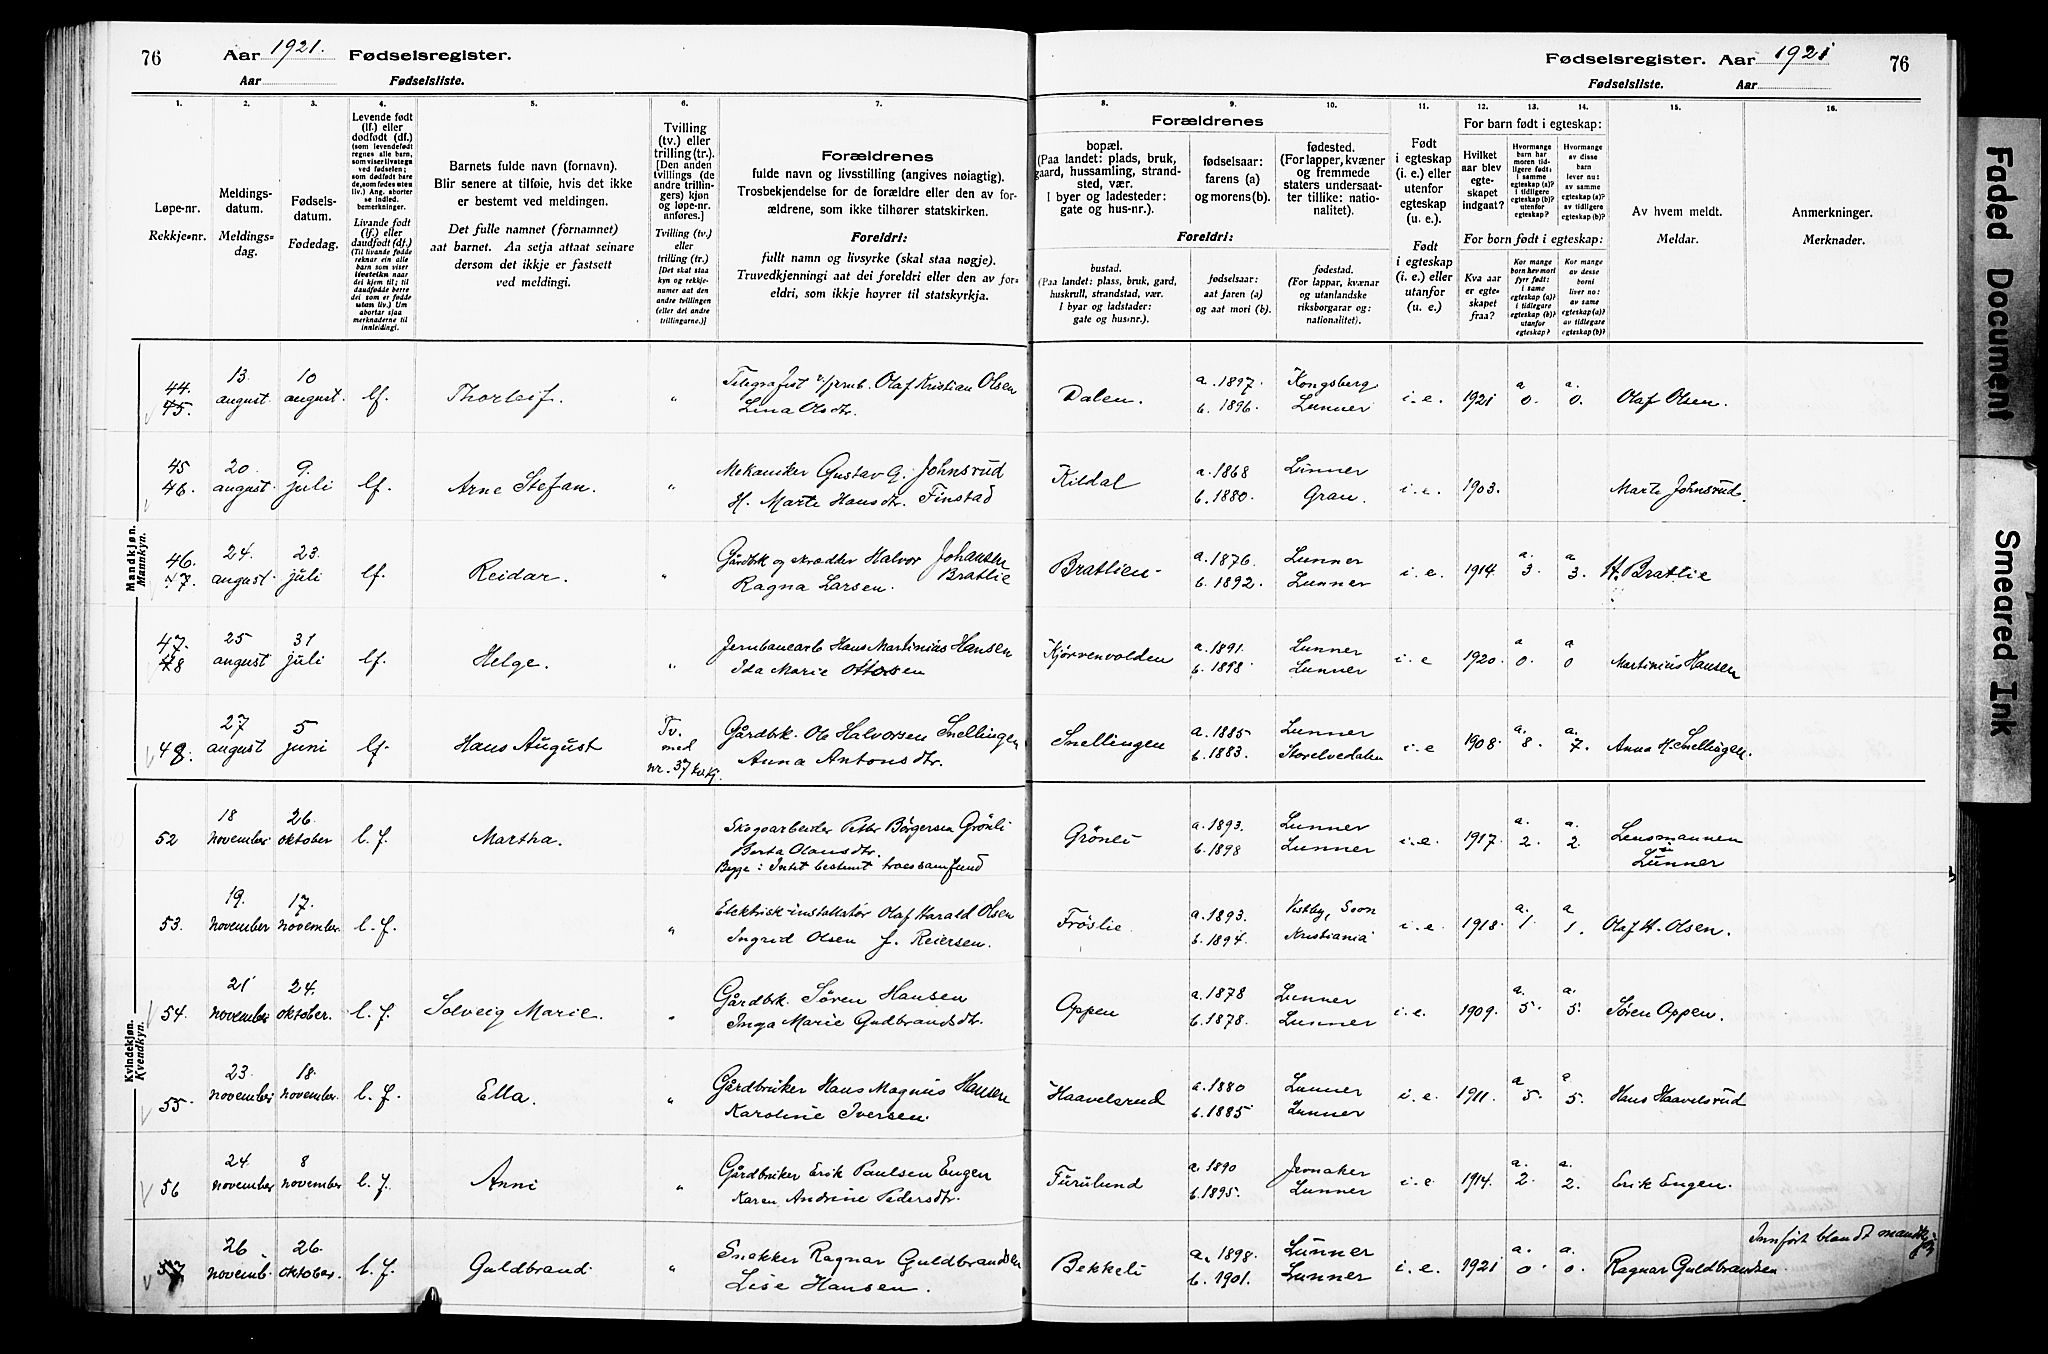 76
Aar 1921. Fødselsregister.
Aar Fødselsliste.
Fødselsregister. Aar 1921
Fødselsliste. Aar
76
1. 2. 3. 4. 5. 6. 7. 8. 9. 10. 11. 12. 13. 14. 15. 16.
Løpe-nr.
Rekkje-nr.
Meldings-
datum.
Meldings-
dag.
Fødsels-
datum.
Fødedag.
Levende født
(lf.) eller
dødfødt (df.)
(som levendefødt
regnes alle barn,
som viser livstegn
ved fødselen;
som dødfødt bare
de, som fødes uten
liv.) Ang. aborter
se indled.
bemerkninger.
Livande født
(lf.) eller
daudfødt (df.)
(Til livande fødde
reknar ein alle
barn som viser
livsteikn naar
dei kjem til; til
daudfødde berre
dei som er fødde
utan liv.) Um
abortar sjaa
merknaderne til
innleidingi.
Barnets fulde navn (fornavn).
Blir senere at tilføie, hvis det ikke
er bestemt ved meldingen.
Det fulle namnet (fornamnet)
aat barnet. Aa setja attaat seinare
dersom det ikkje er fastsett
ved meldingi.
Tvilling
(tv.) eller
trilling (tr.).
[Den anden
tvillings (de
andre trillin-
gers) kjøn
og løpe-nr.
anføres.]
Tvilling (tv.)
eller
trilling (tr.)
[Det skal staa
kyn og rekkje-
numer aat den
andre tvillingen
(eller dei andre
trillingarne.)]
Forældrenes
fulde navn og livsstilling (angives nøiagtig).
Trosbekjendelse for de forældre eller den av for-
ældrene, som ikke tilhører statskirken.
Foreldri:
fullt namn og livsyrke (skal staa nøgje).
Truvedkjenningi aat dei foreldri eller den av for-
eldri, som ikkje høyrer til statskyrkja.
Forældrenes
bopæl.
(Paa landet: plads, bruk,
gaard, hussamling, strand-
sted, vær.
I byer og ladesteder:
gate og hus-nr.).
fødselsaar:
farens (a)
og morens (b).
fødested.
(For lapper, kvæner
og fremmede
staters undersaat-
ter tillike: natio-
nalitet).
Foreldri:
bustad.
(Paa landet: plass, bruk, gard,
huskrull, strandstad, vær.
I byar og ladstader:
gate og hus-nr.).
fødselsaar:
aat faren (a)
og aat mori (b).
fødestad.
(For lappar, kvænar
og utanlandske
riksborgarar og:
nationalitet).
Født
i egteskap
(i. e.) eller
utenfor
egteskap
(u. e.).
Født
i egteskap
(i. e.) eller
utanfor
(u. e.).
For barn født i egteskap:
Hvilket
aar blev
egte-
skapet
indgaat?
Hvormange
barn har
moren tid-
ligere født:
i samme
egteskap (a)?
i tidligere
egteskap (b)?
utenfor
egteskap?
Hvormange
av disse
barn
lever nu:
av samme
egteskap (a)?
av tidligere
egteskap (b)?
For born født i egteskap:
Kva aar
er egte-
skapet
fraa?
Kor mange
born hev mori
fyrr født:
i same
egteskap (a)?
i tidlegare
egteskap (b)?
utanfor
egteskap?
Kor mange
av desse
borni
liver no:
av same
egteskap (a)?
av tidlegare
egteskap (b)?
Av hvem meldt.
Meldar.
Anmerkninger.
Merknader.
Mandkjøn.
Mannkyn.
44. 45. 13 august. 10 august. lf. Thorleif. " Telegrafist v/jernb. Olaf Kristian Olsen
Lina Olsdtr. Dalen. a. 1897. b. 1896. Kongsberg Lunner i. e. 1921 a 0. a. 0. Olaf Olsen.
45 46. 20. august. 9. juli lf. Arne Stefan. " Mekaniker Gustav G. Johnsrud
H. Marte Hansdtr. Finstad Kildal a. 1868 b. 1880. Lunner Gran. i. e. 1903. Marte Johnsrud.
46. 47. 24. august. 23. juli lf. Reidar. " Gårdbk og skrædder Halvor Johansen Bratlie
Ragna Larsen. Bratlien- a. 1876. b. 1892. Lunner Lunner i. e. 1914. a. 3. a. 3. H. Bratlie
47. 48 25 august 31 juli lf. Helge. " Jernbanearb Hans Martinius Hansen
Ida Marie Ottersen Kjørvenvolden a. 1891. b. 1898 Lunner Lunner i. e 1920. a 0. a 0 Martinius Hansen
48. 27 august 5 juni lf. Hans August Tv. med nr. 37 kv.kj. Gårdbk. Ole Halvorsen Snellingen
Anna Antonsdtr. Snellingen a. 1885 b. 1883. Lunner Storelvedalen i. e 1908. a. 8. a. 7. Anna H. Snellingen.
Kvindekjøn.
Kvendkyn.
52 18 november 26. oktober l. f. Martha. Skogsarbeider Petter Børgersen Grönli
Berta Olausdtr.
Begge: Intet bestemt troessamfund Grönli a. 1893. b. 1898 Lunner Lunner i. e. 1917. a. 2. a. 2. Lensmannen i Lunner
53. 19. november 17. november. l. f. " Elektrisk-installatør Olaf Harald Olsen
Ingrid Olsen f. Reiersen. Fröslie. a. 1893. b. 1894. Vestby, Soon Kristiania i. e. 1918. a. 1. a 1. Olaf H. Olsen.
54. 21 november 24. oktober. l. f. Solveig Marie. " Gårdbk. Søren Hansen
Inga Marie Gudbrandsdtr. Oppen a. 1878 b. 1878. Lunner Lunner i. e. 1909. a. 5. a. 5. Søren Oppen.
55. 23. november 18. november. l. f. Ella. " Gårdbruker Hans Magnus Hansen
Karoline Iversen. Haavelsrud a. 1880 b. 1885. Lunner Lunner i. e. 1911. a. 5. a 5. Hans Haavelsrud
56 24 november 8 november l. f. Anni " Gårdbruker Erik Paulsen Engen
Karen Andrine Pedersdtr. Furulund a. 1890 b. 1895. Jevnaker Lunner i. e. 1914. a. 2. a. 2. Erik Engen.
57 26 novemb. 26. oktober. l. f. Guldbrand " Snekker Ragnar Guldbrandsen
Lise Hansen. Bekkeli a. 1898. b. 1901. Lunner Lunner i. e. 1921 a. 0. a. 0. Ragnar Guldbrandsen Innført blandt mandkjøn
Faded Document
Smeared Ink